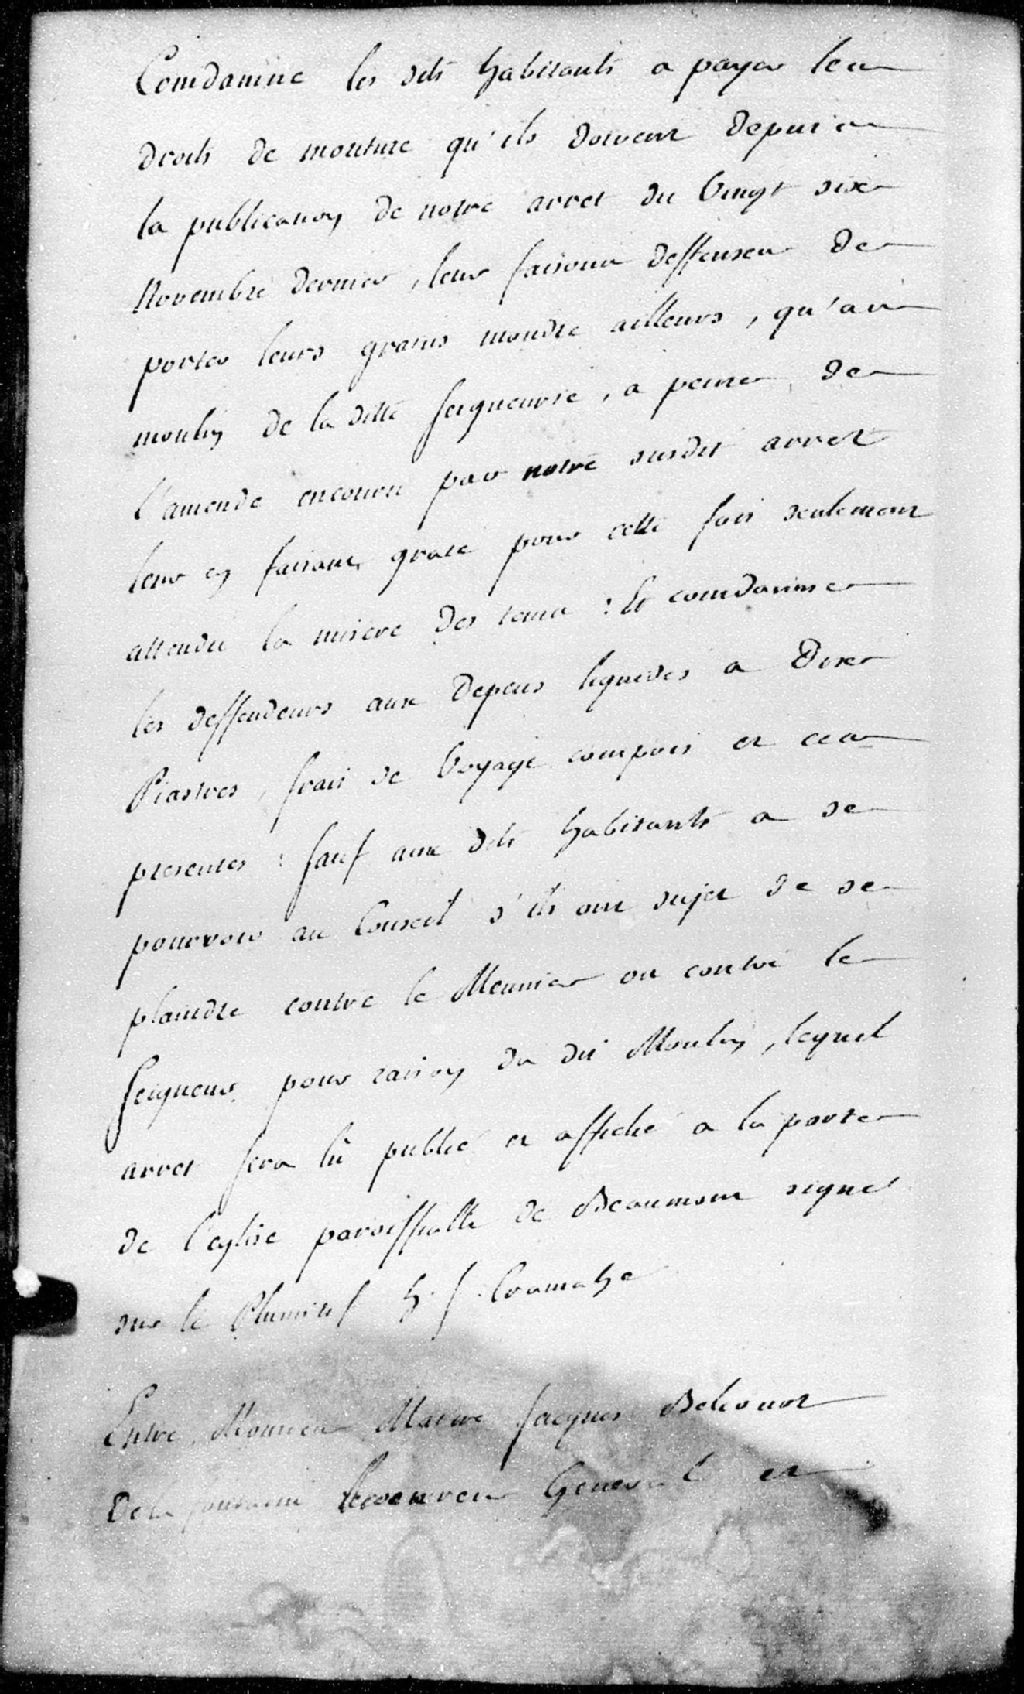 Comdamne les dits habitants a payer leu
droits de mouture qu'ils doivent depuis
la publication de notre arret du Vingt six
Novembre dernier, leur faisons deffenses de
porter leurs grains moudre ailleurs, qu'au
moulin de la ditte seigneurie, a peine de
l'amende encourue par notre susdit arret
leur en faisant grace pour cette fois seulement
attendu la misere des tems : et comdamne
les deffendeurs aux depens liquidés a Dix
Piastres, frais de Voyage compris et ces
presentes : sauf aux dits habitants a se
pourvoir au Conseil s'ils ont sujet de se
plaindre contre le Meunier ou contre le
Seigneur, pour raison du dit Moulin, lequel
arret sera lû publié et affiché a la porte
de l'eglise paroissialle de Beaumont signé
sur le Plumitif h. f. Cramahe
Entre Monsieur Maitre Jacques Belcourt
Dela fontaine Procureur General et